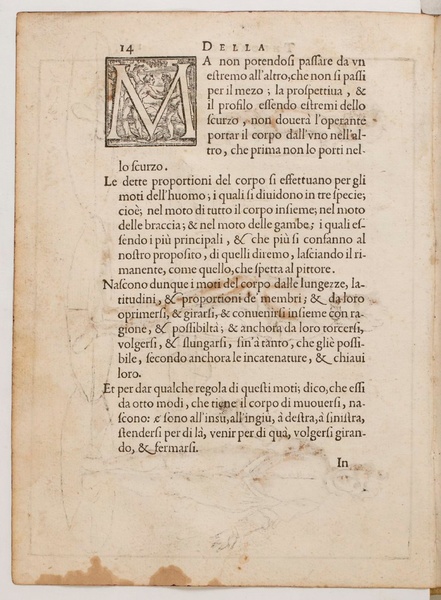 14 DELLA
MA non potendosi passare da vn
estremo all'altro, che non si passi
per il mezo; la prospettiua, &
il profilo essendo estremi dello
scurzo, non douerà l'operante
portar il corpo dall'vno nell'al-
tro, che prima non lo porti nel-
lo scurzo.
Le dette proportioni del corpo si effettuano per gli
moti dell'huomo; i quali si diuidono in tre specie;
cioè; nel moto di tutto il corpo insieme; nel moto
delle braccia; & nel moto delle gambe; i quali es-
sendo i più principali, & che più si confanno al
nostro proposito, di quelli diremo, lasciando il ri-
manente, come quello, che spetta al pittore.
Nascono dunque i moti del corpo dalle lungezze, la-
titudini, & proportioni de' membri; & da loro
oprimersi, & girarsi, & conuenirsi insieme con ra-
gione, & possibiltà; & anchora da loro torcersi,
volgersi, & slungarsi, sin'à tanto, che gliè possi-
bile, secondo anchora le incatenature, & chiaui
loro.
Et per dar qualche regola di questi moti; dico, che essi
da otto modi, che tiene il corpo di muouersi, na-
scono: e sono all'insù, all'ingiu, à destra, à sinistra,
stendersi per di là, venir per di quà, volgersi giran-
do, & fermarsi.
In